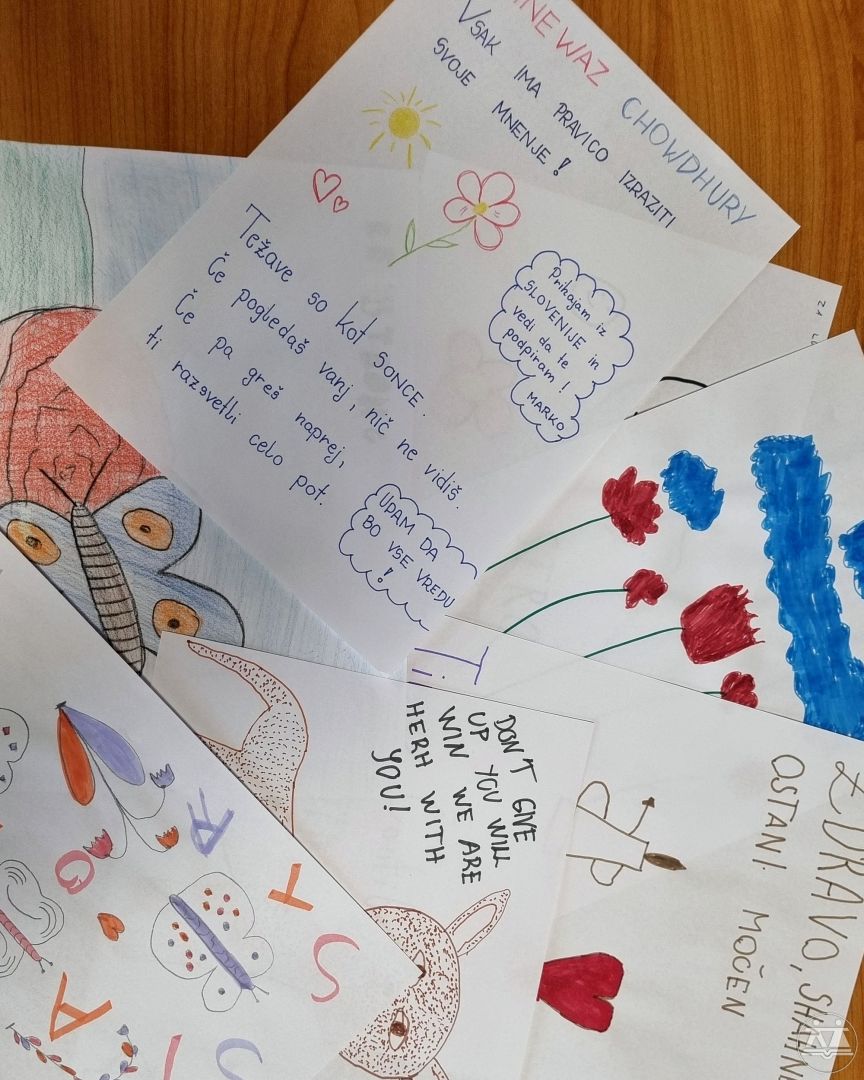 NEWAZ CHOWDHURY
VSAK IMA PRAVICO IZRAZITI
SVOJE MNENJE!
Težave so kot SONCE.
Če pogledaš vanj, nič ne vidiš.
Če pa greš naprej,
ti razsvetli celo pot.
Prihajam iz
SLOVENIJE in
vedi da te
podpiram!
MARKO
UPAM DA
BO VSE VREDU
!
Ti
DON'T GIVE
UP YOU WILL
WIN WE ARE
HERH WITH
YOU!
ZDRAVO, SHAHNE
OSTANI MOČEN